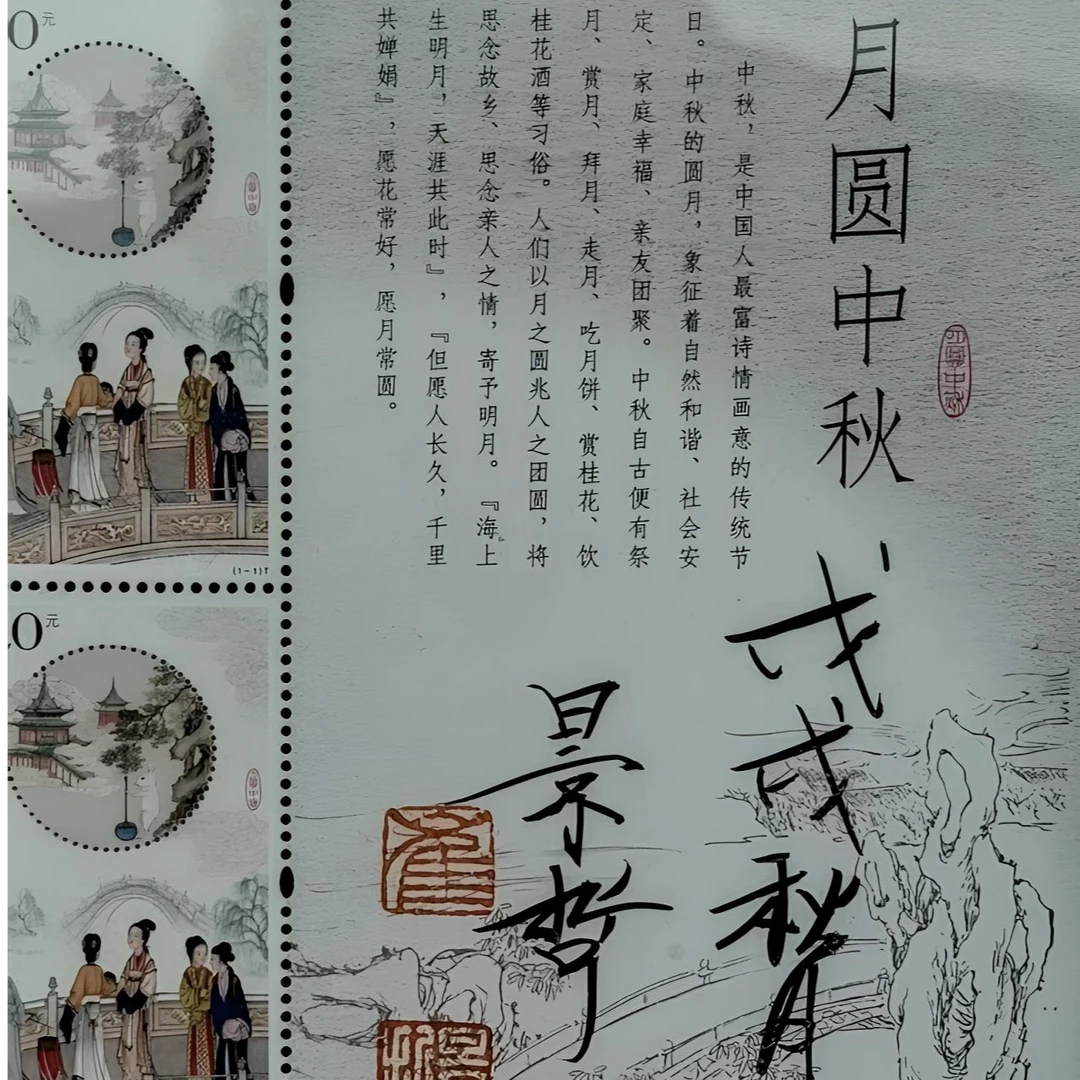 月圆中秋
月圆中秋
中秋，是中国人最富诗情画意的传统节
日。中秋的圆月，象征着自然和谐、社会安
定、家庭幸福、亲友团聚。中秋自古便有祭
月、赏月、拜月、走月、吃月饼、赏桂花、饮
桂花酒等习俗。人们以月之圆兆人之团圆，将
思念故乡、思念亲人之情，寄予明月。『海上
生明月，天涯共此时』，『但愿人长久，千里
共婵娟』，愿花常好，愿月常圆。
戊戌秋
景哲
崔
0元
(1-1)T
0元